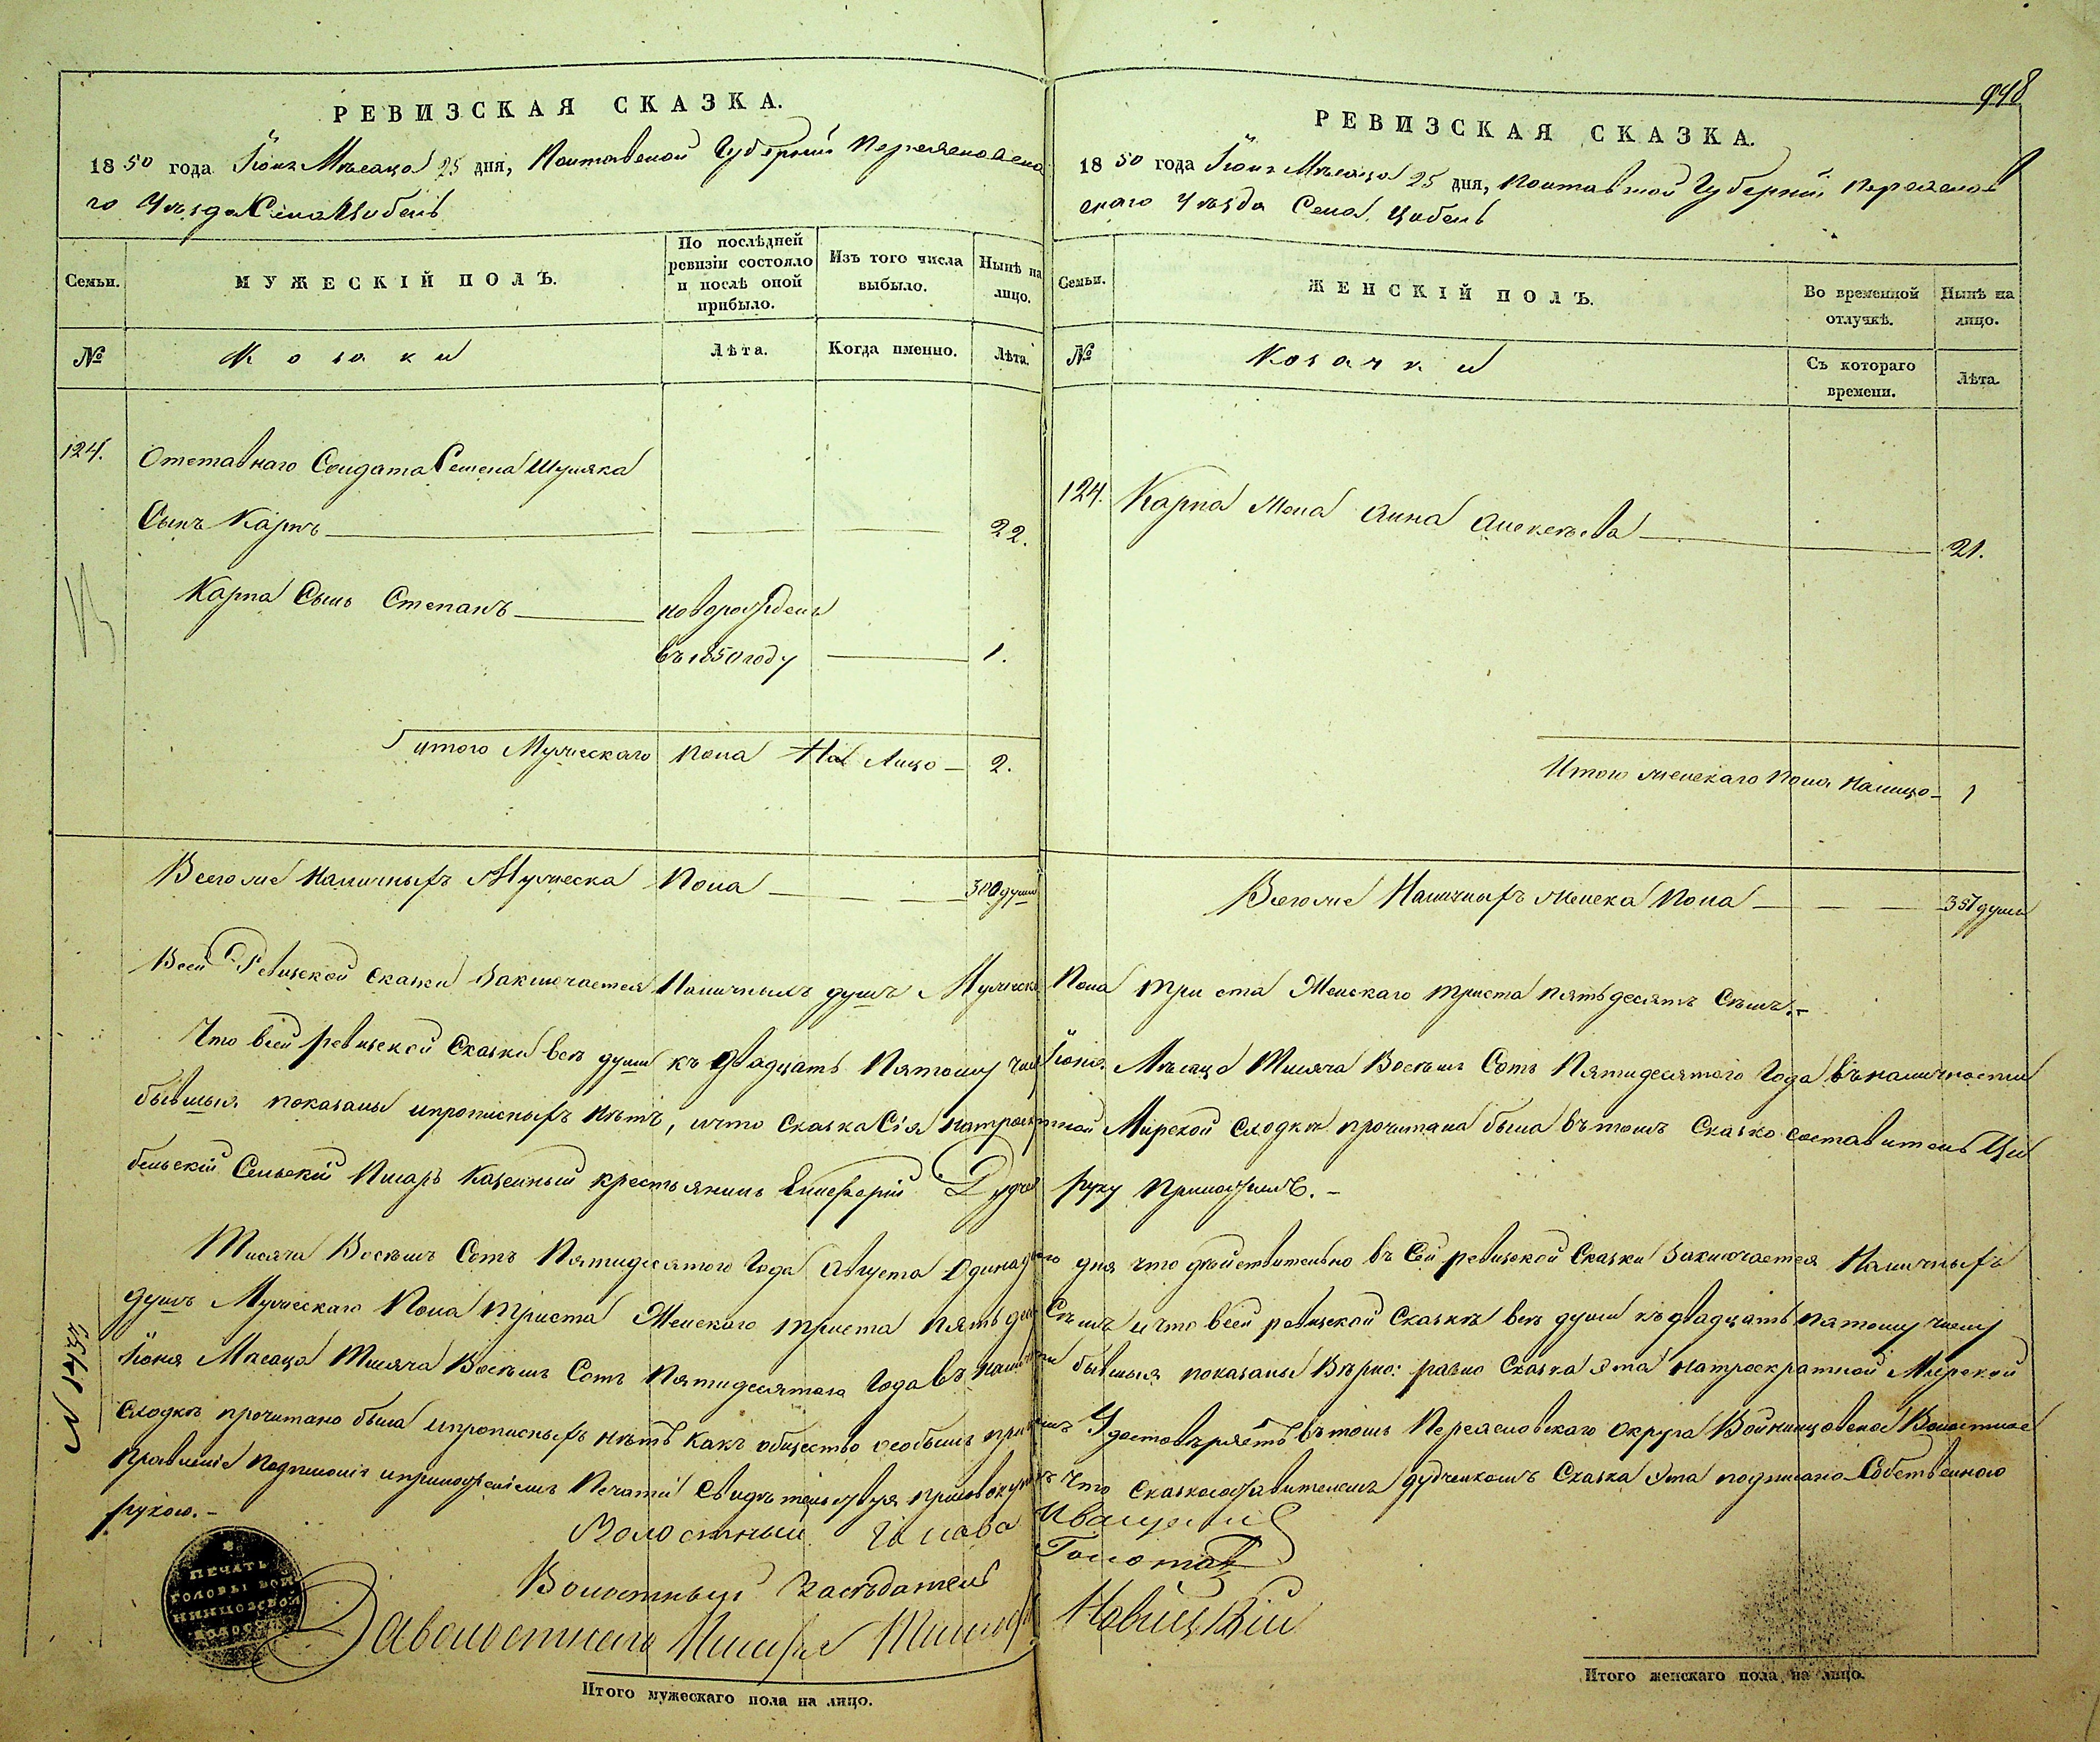 РЕВИЗСКАЯ СКАЗКА.
1850 года Іюня Мѣсяца 25 дня, Полтавской Губерніи Переясловска
го Уѣзда Села Цибель
Семьи.
МУЖЕСКІЙ ПОЛЪ.
По послѣдней ревизіи состояло и послѣ оной прибыло.
Изъ того числа выбыло.
Нынѣ на лицо.
№
Козаки
Лѣта.
Когда именно.
Лѣта.
124.
Отставнаго Солдата Семена Шуляка
Сынъ Карпъ 22.
Карпа Сынъ Степанъ новорожденъ
въ 1850 году 1.
Итого Мужескаго пола На Лицо 2.
Всего же Наличныхъ Мужеска Пола 300 душъ
948
РЕВИЗСКАЯ СКАЗКА.
1850 года Іюня Мѣсяца 25 дня, Полтавской Губерніи Переяслов
скаго Уѣзда Села Цибель
Семьи.
ЖЕНСКІЙ ПОЛЪ.
Во временной отлучкѣ.
Нынѣ на лицо.
№
Козачки
Съ котораго времени.
Лѣта.
124. Карпа Жена Анна Алексѣева 21.
Итого женскаго Пола Налицо 1
Всего же Наличныхъ Женска Пола 357 душъ
Всей Ревизской Сказки Заключается Наличныхъ душъ Мужеска Пола три ста Женскаго триста пятьдесятъ Семь.
Что всей ревизской Сказки всѣ души къ двадцать Пятому Числу Іюня Мѣсяца Тисяча Восѣмъ Сотъ Пятидесятого Года въ наличности
бывшыя показаны и прописныхъ нѣтъ, и что Сказка Сія на троекратной Мирской Сходкѣ прочитана была въ томъ Сказко составитель Ци
бельскій Сельскій Писарь Казенный крестьянинъ Елисферій Дудченко руку приложилъ.
Тисяча Восѣмъ Сотъ Пятидесятого Года Августа Одинадцатого дня что дѣйствительно въ Сей ревизской Сказки Заключается Наличныхъ
душъ Мужескаго Пола Триста Женскаго триста пятьдесятъ Семь и что всей ревизской Сказкѣ всѣ души къ двадцать пятому числу
Іюня Мѣсяца Тисяча Восѣмъ Сотъ Пятидесятого Года въ наличности бывшыя показаны Вѣрно: равно Сказка эта на троекратной Мирской
Сходкѣ прочитано была и прописныхъ нѣтъ какъ общество особымъ Удостовѣряетъ въ томъ Переясловскаго округа Войнинцовское Волостное
Правленіе Подписомъ и приложеніемъ Печати Свидѣтельствуя что Сказкосоставителемъ Дудченкомъ Сказка эта подписана Собственною
рукою.
Волостный Голова Иващенко
Волостный Засѣдатель Голота
За волостнаго Писаря Новицкій
№ 1437
ПЕЧАТЬ ГОЛОВЫ ВОЙНИНЦОВСКОЙ ВОЛОСТИ
Итого мужескаго пола на лицо.
Итого женскаго пола на лицо.